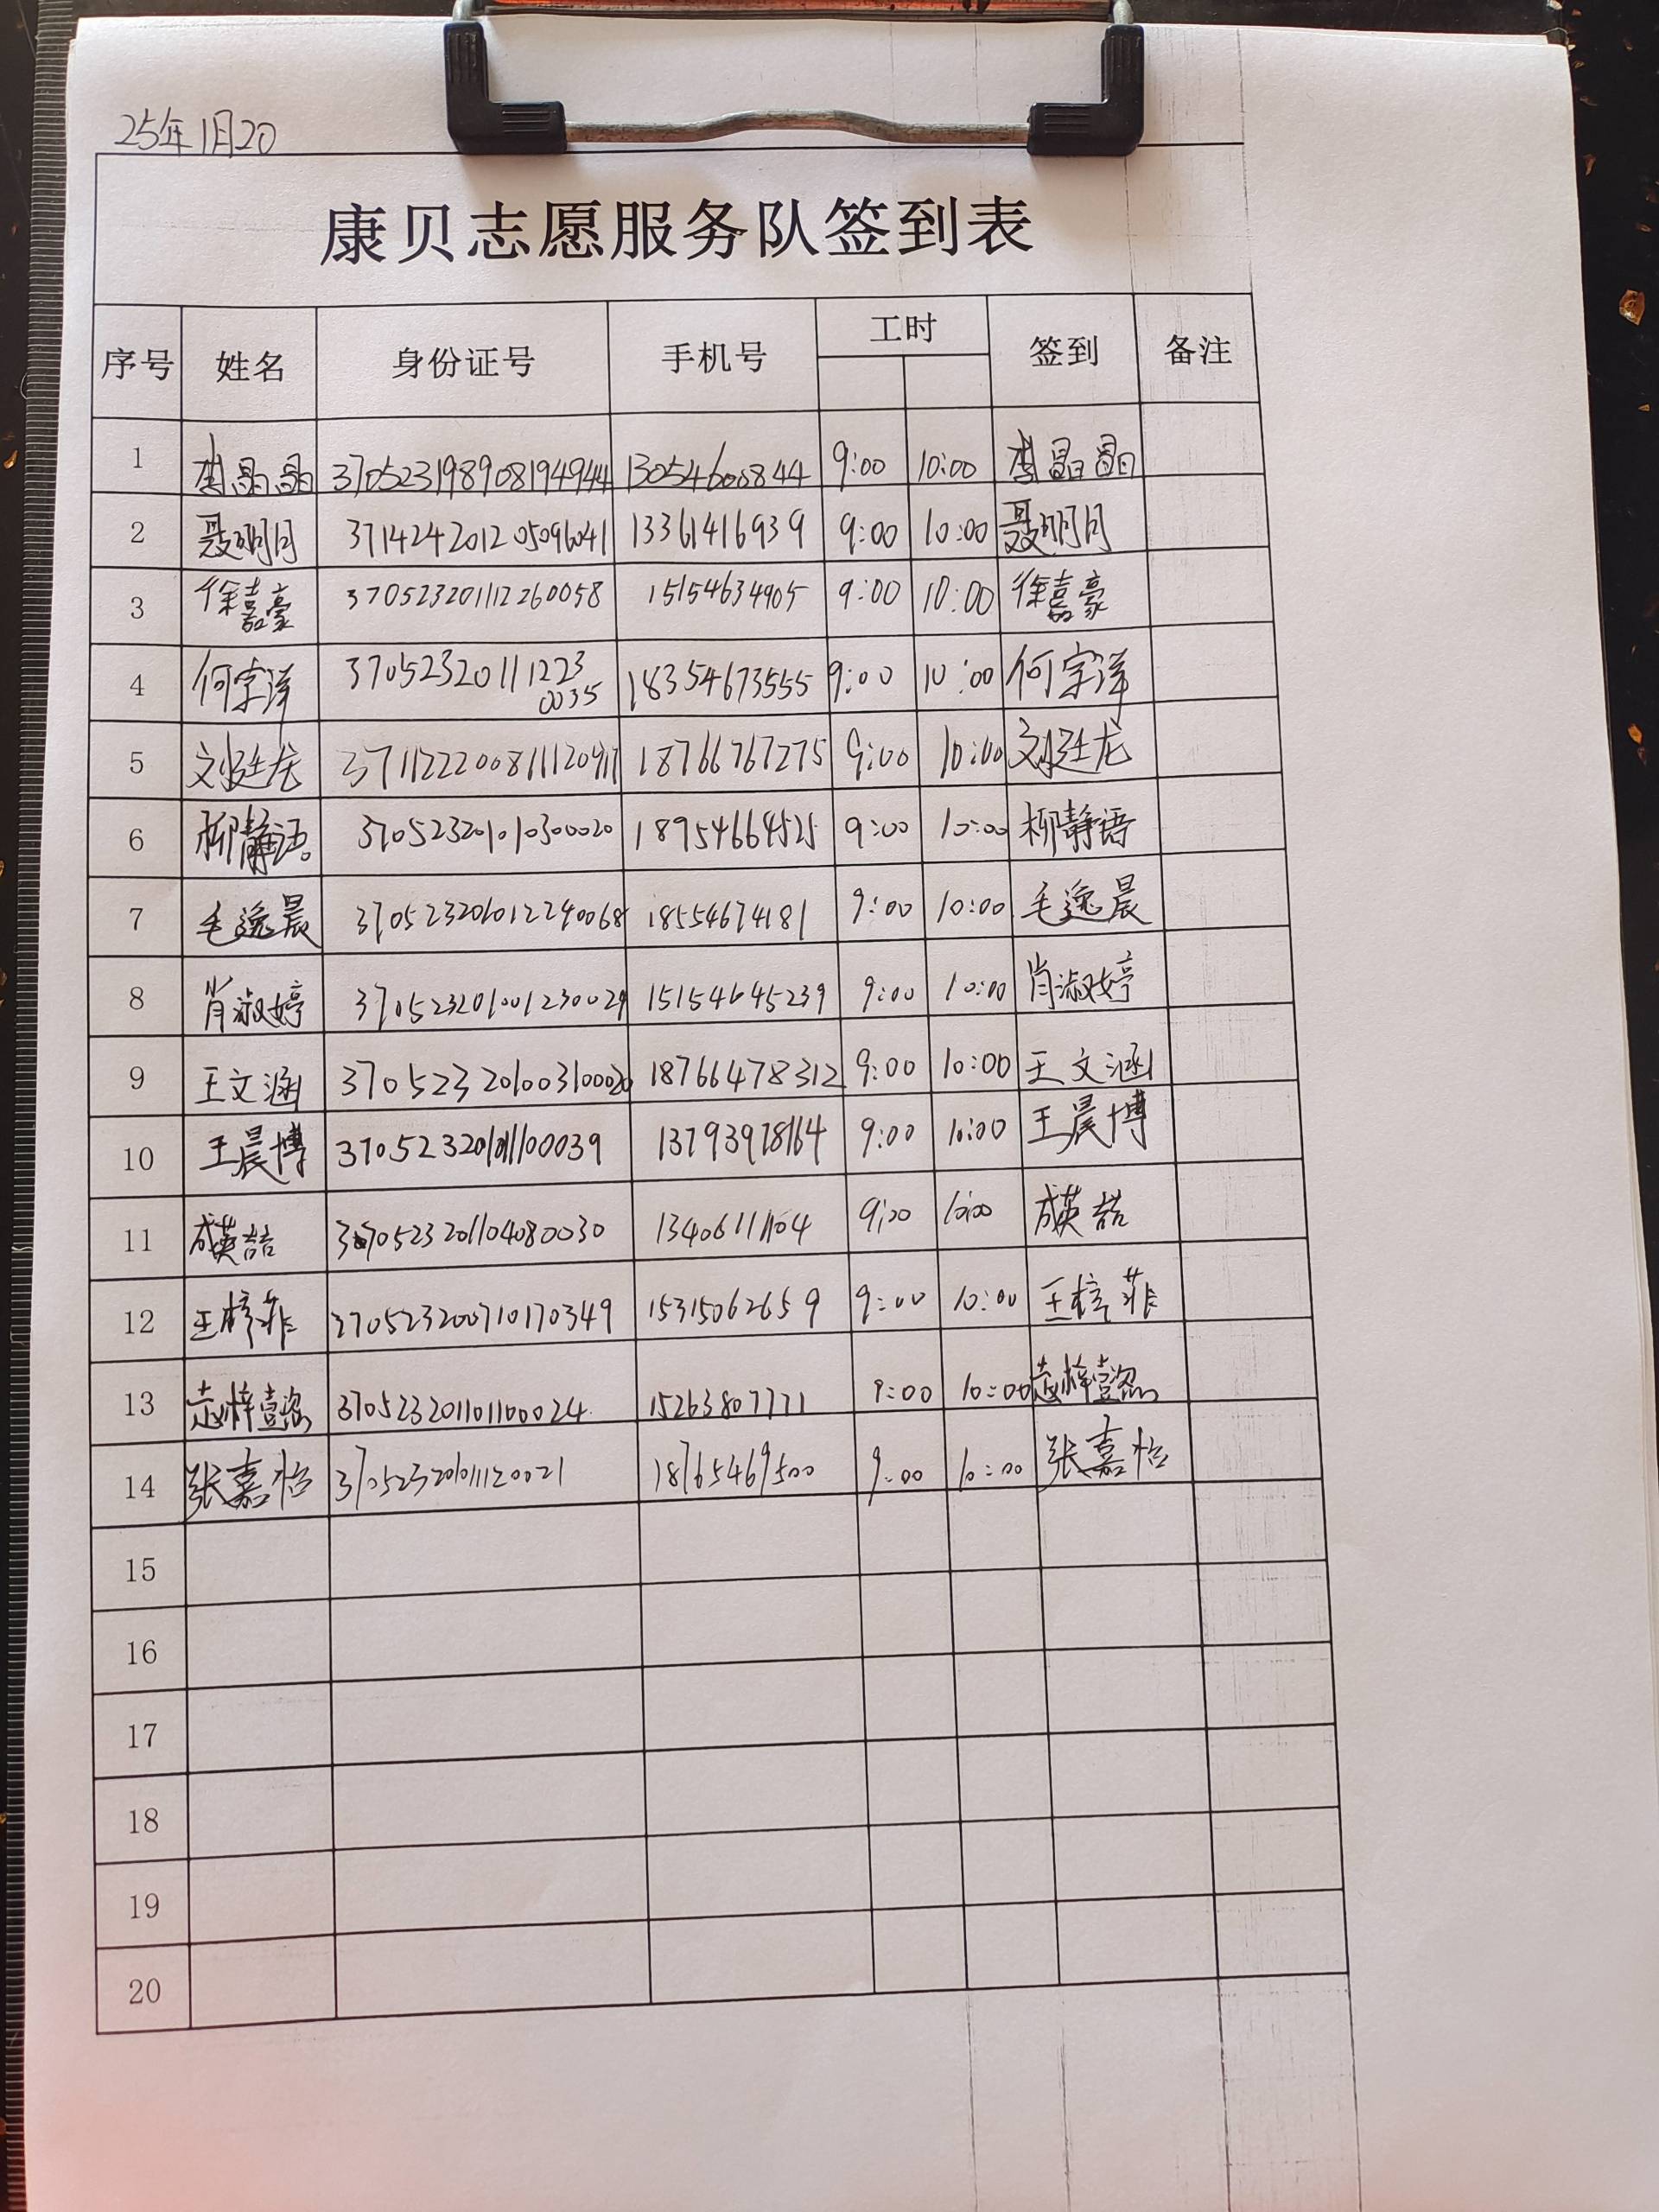 25年1月20
康贝志愿服务队签到表
序号 姓名 身份证号 手机号 工时 签到 备注
1 李晶晶 370523198908194944 13054600844 9:00 10:00 李晶晶
2 聂明月 371424201205096041 13361416939 9:00 10:00 聂明月
3 徐嘉豪 370523201112260058 15154634905 9:00 10:00 徐嘉豪
4 何宇洋 370523201112230035 18354673555 9:00 10:00 何宇洋
5 刘廷龙 18766767275 9:00 10:00 刘廷龙
6 柳静语 370523201010300020 18954664525 9:00 10:00 柳静语
7 毛逸晨 370523201012240068 18554674181 9:00 10:00 毛逸晨
8 肖淑婷 370523201001230029 15154645239 9:00 10:00 肖淑婷
9 王文涵 370523201003100020 18766478312 9:00 10:00 王文涵
10 王晨博 13793978164 9:00 10:00 王晨博
11 成英喆 370523201104080030 13406111104 9:00 10:00 成英喆
12 王梓菲 370523200710170349 15315062659 9:00 10:00 王梓菲
13 370523201101100024 15263807771 9:00 10:00
14 张嘉怡 370523201011120021 18765469500 9:00 10:00 张嘉怡
15
16
17
18
19
20